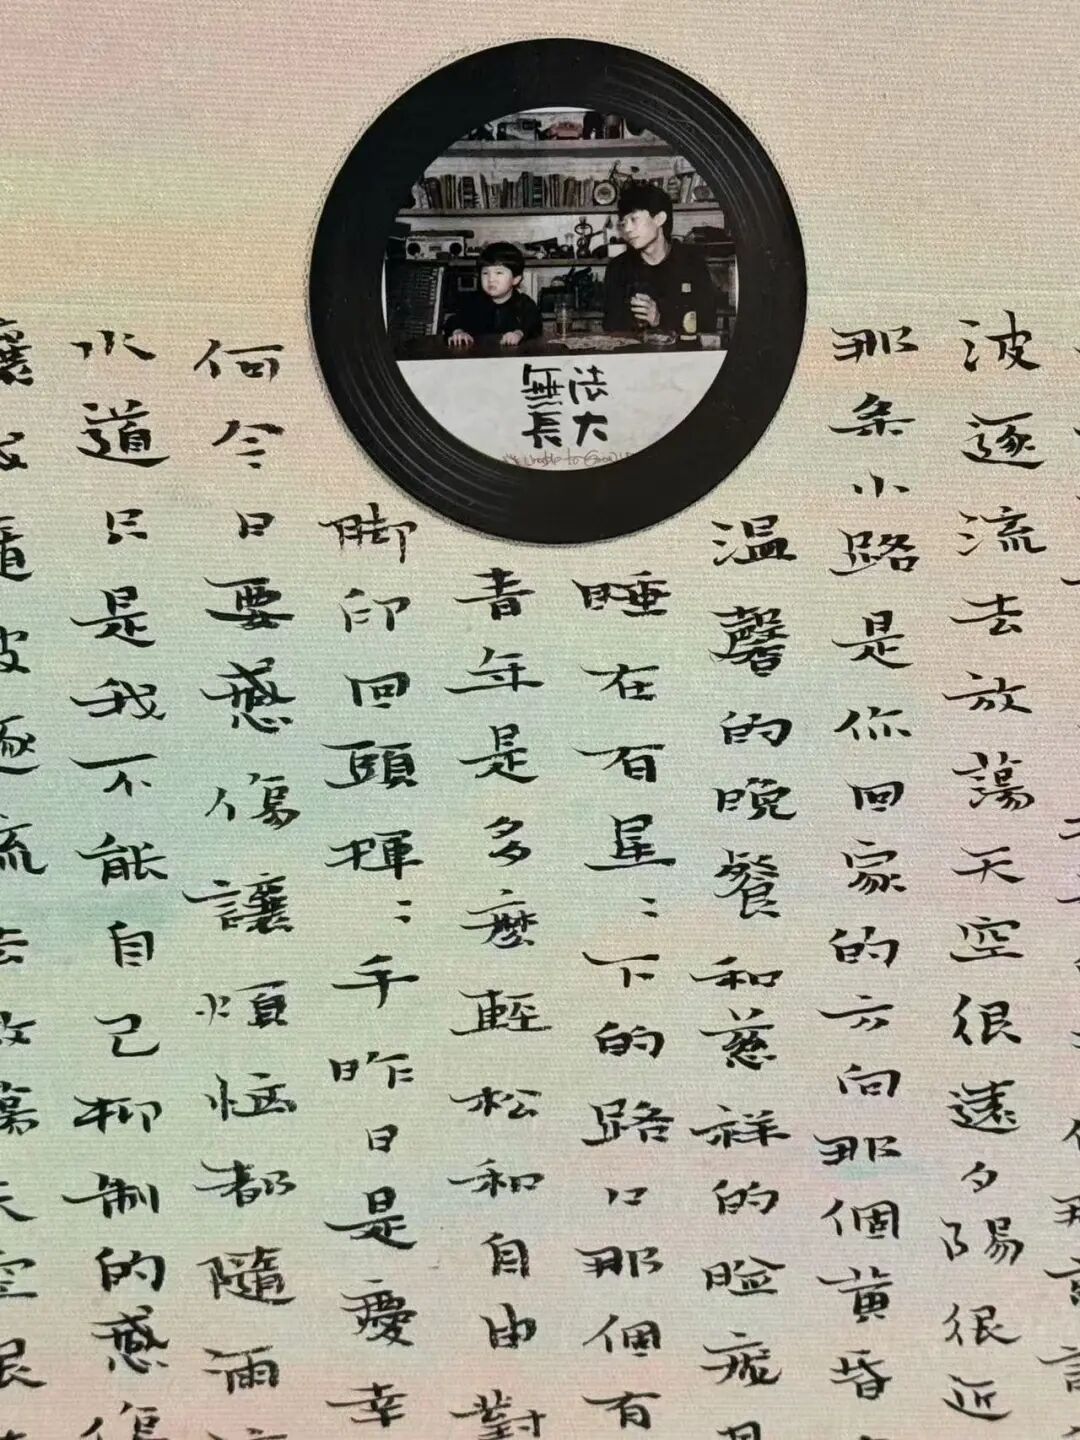 無法
長大
波逐流去放蕩天空很遠夕陽很近
那条小路是你回家的方向那個黄昏
温馨的晚餐和慈祥的臉
睡在有星:下的路口那個有
青年是多麼輕松和自由對
脚印回頭揮:手昨日是慶幸
何今日要感傷讓煩恼都隨
水道只是我不能自己抑制的感傷
逐流去放蕩天空很